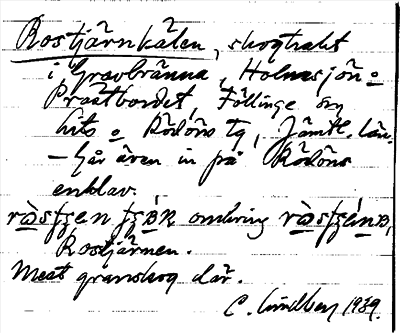 Rostjärnkälen, skogtrakt
i Gravbränna, Holmsjön o
Prästbordet, Föllinge sn
Lits o Rödöns tg, Jämtl. län.
- Går även in på Rödöns
enklav.
omkring
Rostjärnen.
Mest granskog där.
C. Lindberg 1939.